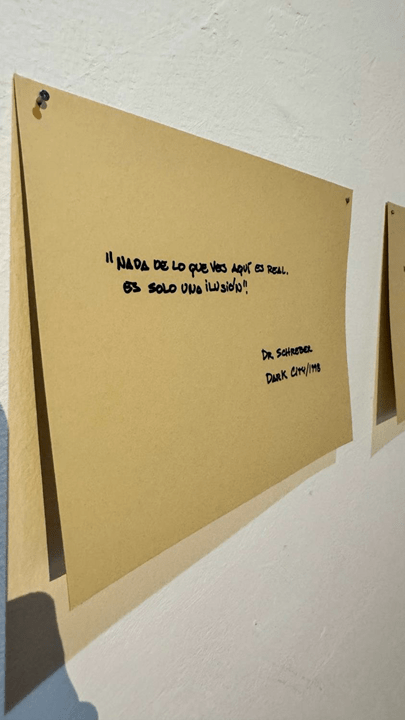 "NADA DE LO QUE VES AQUÍ ES REAL.
ES SOLO UNA iLUSIÓN".
DR SCHREBER
DARK CITY/1998